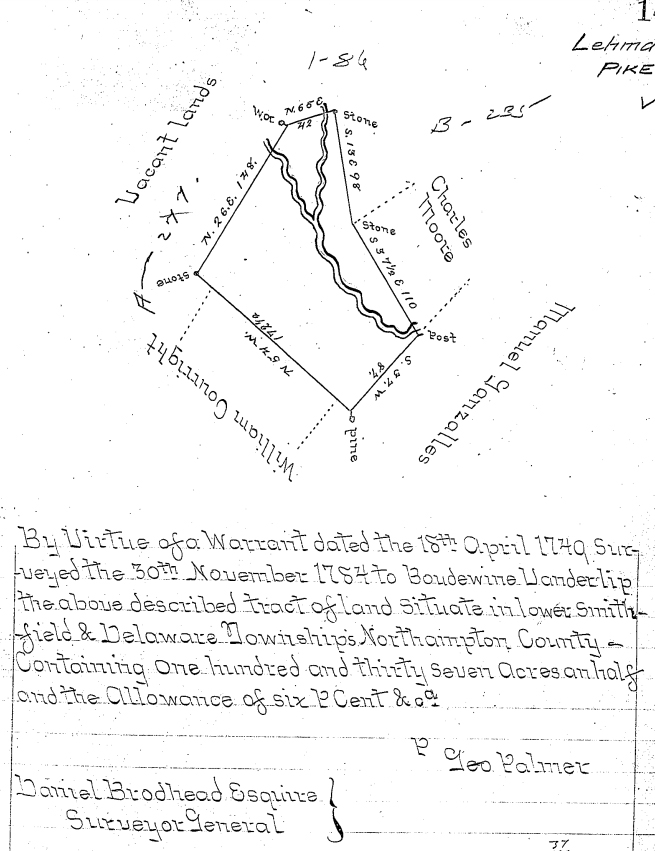 1-86
Lehma
PIKE
V
B - 235
Vacant lands
W.O.
N. 66 E.
42
Stone
S. 13 E 98
N. 26. E. 178.
Stone
Charles
Moore
S 37½ E 110
Stone
N 54 W.
William Courtright
Post
S. 37. W
87.
Pine
Manuel Gonzalles
By Virtue of a Warrant dated the 18th April 1749 Sur-
veyed the 30th November 1784 to Boudewine Vanderlip
the above described tract of land Situate in lower Smith-
field & Delaware Townships Northampton County -
Containing One hundred and thirty seven Acres an half
and the Allowance of six P Cent & ca
P
Geo Palmer
Daniel Brodhead Esquire
Surveyor General
37